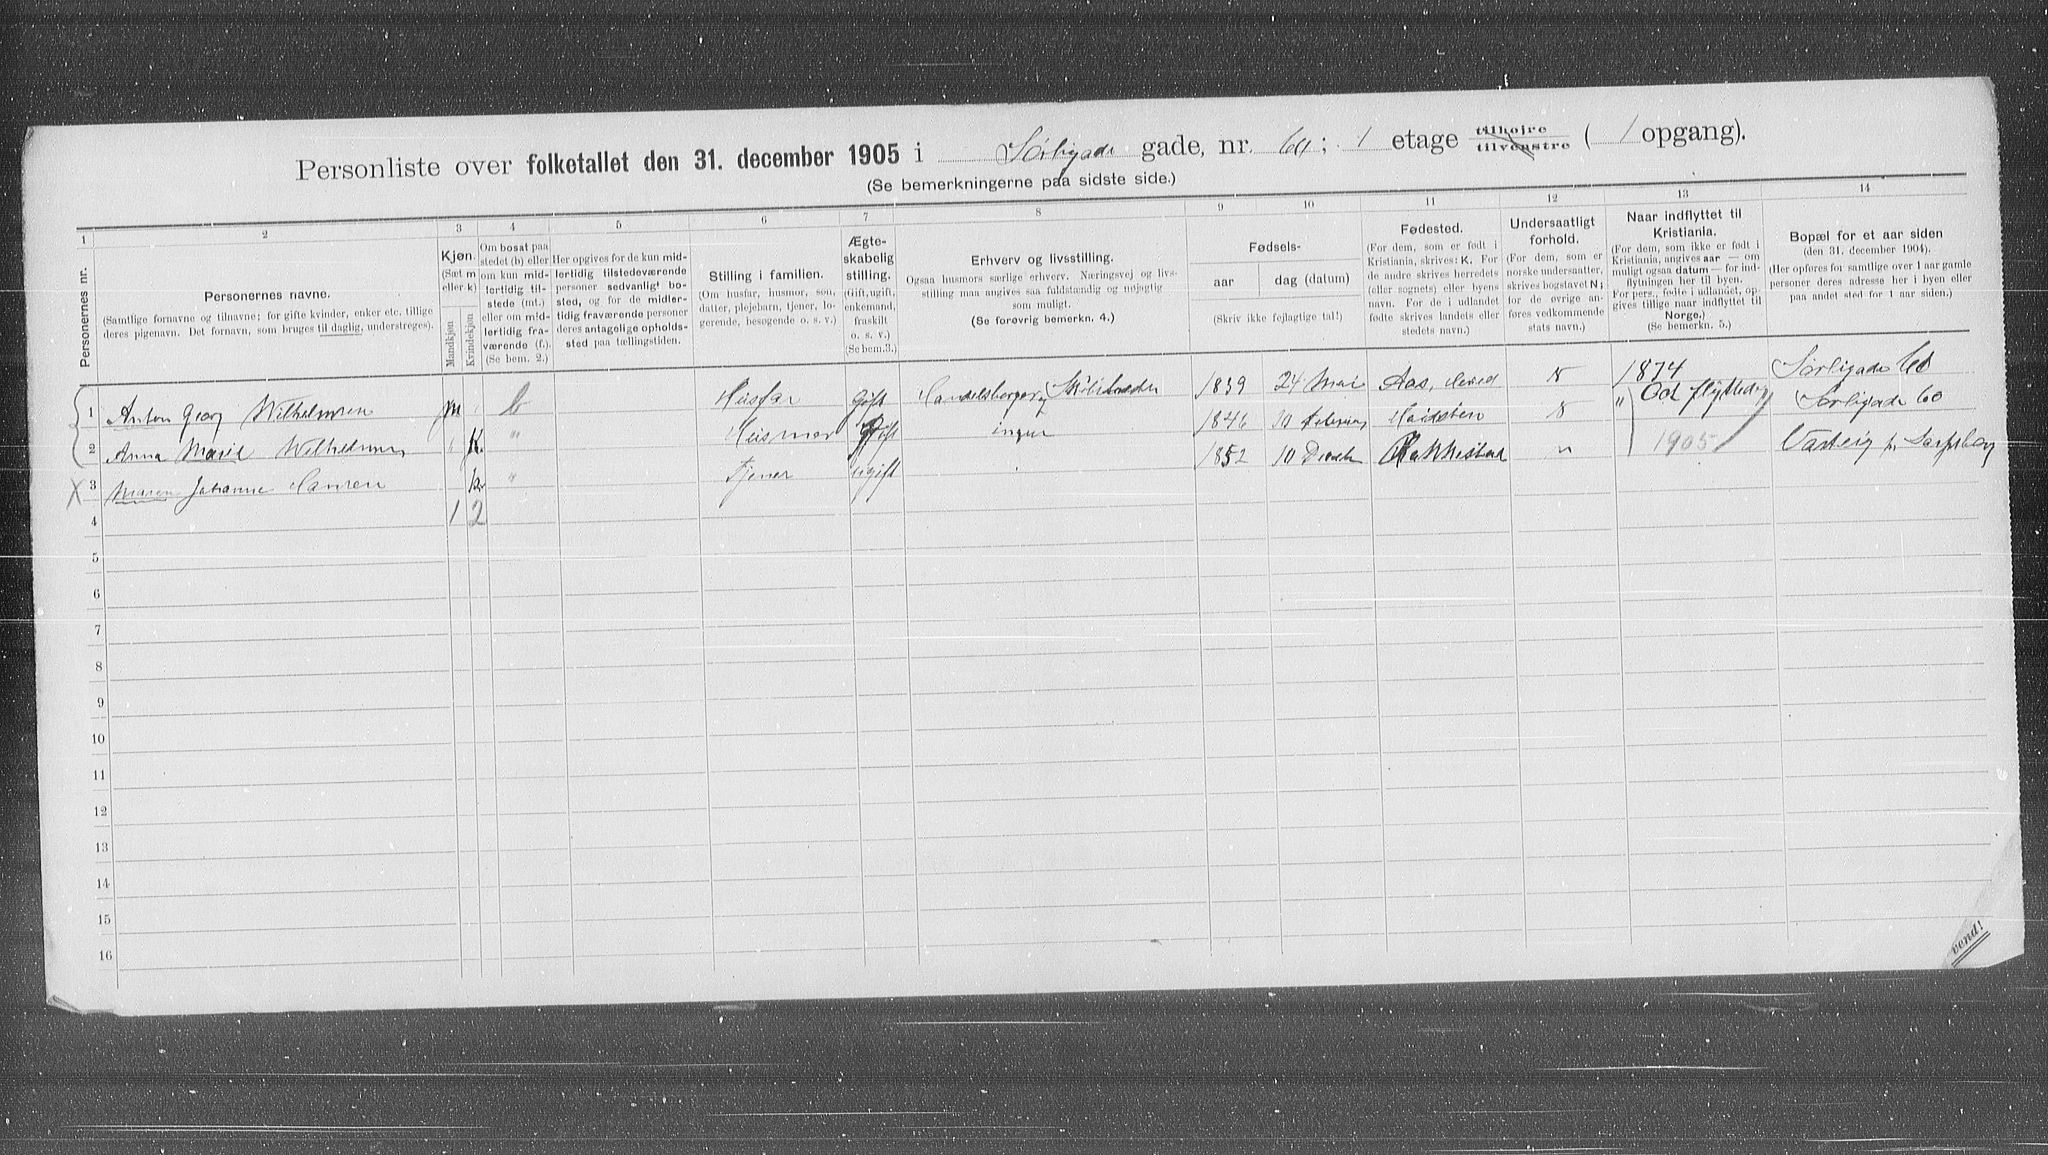 Personliste over folketallet den 31. december 1905 i Sørligade gade, nr. 60; 1 etage tilhøjre tilvenstre ( 1 opgang).
(Se bemerkningerne paa sidste side.)
1 2 3 4 5 6 7 8 9 10 11 12 13 14
Personernes nr.
Personernes navne.
(Samtlige fornavne og tilnavne; for gifte kvinder, enker etc. tillige
deres pigenavn. Det fornavn, som bruges til daglig, understreges).
Kjøn.
(Sæt m
eller k)
Mandkjøn
Kvindekjøn
Om bosat paa
stedet (b) eller
om kun mid-
lertidig til-
stede (mt.)
eller om mid-
lertidig fra-
værende (f.).
(Se bem. 2.)
Her opgives for de kun mid-
lertidig tilstedeværende
personer sedvanligt bo-
sted, og for de midler-
tidig fraværende personer
deres antagelige opholds-
sted paa tællingstiden.
Stilling i familien.
(Om husfar, husmor, søn,
datter, plejebarn, tjener, lo-
gerende, besøgende o. s. v.)
Ægte-
skabelig
stilling.
(Gift, ugift,
enkemand,
fraskilt
o. s. v.)
(Se bem.3.)
Erhverv og livsstilling.
Ogsaa husmors særlige erhverv. Næringsvej og livs-
stilling maa angives saa fuldstændig og nøjagtig
som muligt.
(Se forøvrig bemerkn. 4.)
Fødsels-
aar dag (datum)
(Skriv ikke fejlagtige tal!)
Fødested.
(For dem, som er født i
Kristiania, skrives: K. For
de andre skrives herredets
(eller sognets) eller byens
navn. For de i udlandet
fødte skrives landets eller
stedets navn.)
Undersaatligt
forhold.
(For dem, som er
norske undersaatter,
skrives bogstavet N;
for de øvrige an-
føres vedkommende
stats navn.)
Naar indflyttet til
Kristiania.
(For dem, som ikke er født i
Kristiania, angives aar — om
muligt ogsaa datum — for ind-
flytningen her til byen.
For pers., fødte i udlandet, op-
gives tillige naar indflyttet til
Norge.)
(Se bemerkn. 5.)
Bopæl for et aar siden
(den 31. december 1904).
(Her opføres for samtlige over 1 aar gamle
personer deres adresse her i byen eller
paa andet sted for 1 aar siden.)
1 Anton Georg Wilhelmsen m b Husfar Gift Handelsborger 1839 24 Mai Aas, N 1874 Sørligade 60
2 Anna Marie Wilhelmsen K " Husmor Gift ingen 1846 10 Februar N " Sørligade 60
X 3 Maren Johanne Hansen k " Tjener ugift 1852 10 Rakkestad 1905 Varteig pr Sarpsborg
4 1 2
5
6
7
8
9
10
11
12
13
14
15
16
vend!